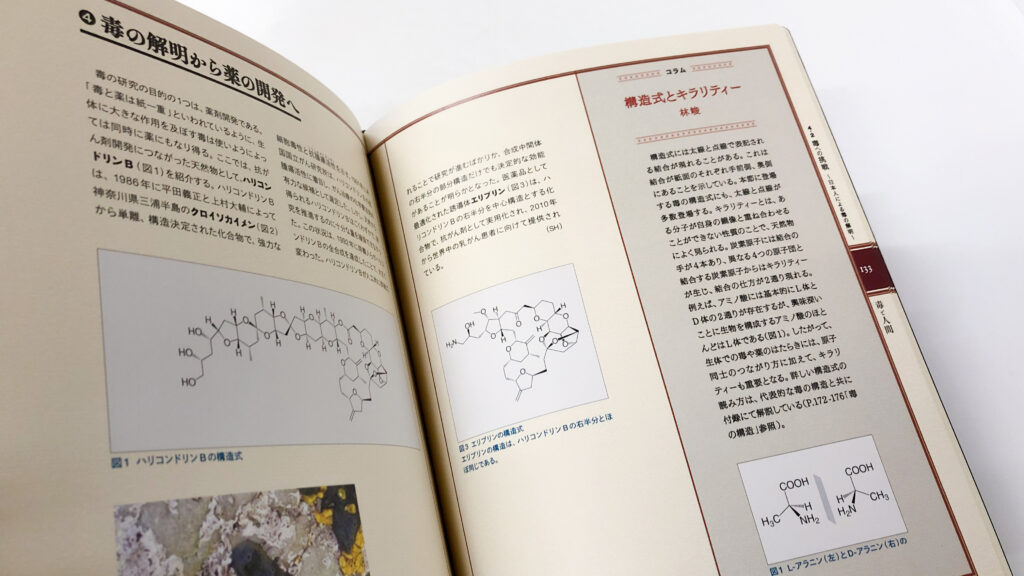 ❹ 毒の解明から薬の開発へ
毒の研究の目的の1つは、薬剤開発である。
「毒と薬は紙一重」といわれているように、生
体に大きな作用を及ぼす毒は使いようによっ
ては同時に薬にもなり得る。ここでは、抗が
ん剤開発につながった天然物として、ハリコン
ドリンB(図1)を紹介する。ハリコンドリンB
は、1986年に平田義正と上村大輔によって
神奈川県三浦半島のクロイソカイメン(図2)
から単離、構造決定された化合物で、強力な
HO
HO
HO
図1 ハリコンドリンBの構造式
れることで研究が進むばかりか、合成中間体
の右半分の部分構造だけでも決定的な効能
があることが明らかとなった。医薬品として
最適化された誘導体エリブリン(図3)は、ハ
リコンドリンBの右半分を中心構造とする化
合物で、抗がん剤として実用化され、2010年
から世界中の乳がん患者に向けて提供され
ている。
(SH)
H₂N
図3 エリブリンの構造式
エリブリンの構造は、ハリコンドリンBの右半分とほ
ぼ同じである。
コラム
構造式とキラリティー
林 峻
構造式には太線と点線で表記され
る結合が現れることがある。これは
結合が紙面のそれぞれ手前側、奥側
にあることを示している。本節に登場
する毒の構造式にも、太線と点線が
多数登場する。キラリティーとは、あ
る分子が自身の鏡像と重ね合わせる
ことができない性質のことで、天然物
によく見られる。炭素原子には結合の
手が4本あり、異なる4つの原子団と
結合する炭素原子からはキラリティー
が生じ、結合の仕方が2通り現れる。
例えば、アミノ酸には基本的にL体と
D体の2通りが存在するが、興味深い
ことに生物を構成するアミノ酸のほと
んどはL体である(図1)。したがって、
生体での毒や薬のはたらきには、原子
同士のつながり方に加えて、キラリ
ティーも重要となる。詳しい構造式の
読み方は、代表的な毒の構造と共に
付録にて解説している(P.172-176「毒
の構造」参照)。
COOH
H₃C
H
NH₂
COOH
H
H₂N
CH₃
図1 L-アラニン(左)とD-アラニン(右)の
133
毒と人間